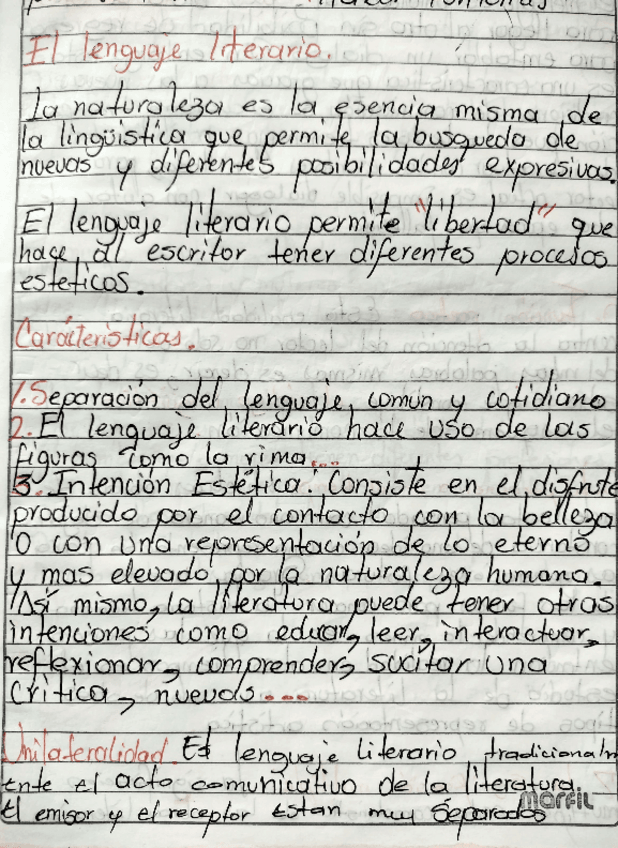 El lenguaje literario.
La naturaleza es la esencia misma de
la lingüistica que permite la busqueda de
nuevas y diferentes posibilidades expresivas.
El lenguaje literario permite "libertad" que
hace al escritor tener diferentes procesos
esteticos.
Carácteristicas.
1. Separación del lenguaje común y cotidiano
2. El lenguaje literario hace uso de las
figuras como la rima...
3. Intención Estética: Consiste en el disfrute
producido por el contacto con la belleza
O con una representación de lo eterno
y mas elevado por la naturaleza humana.
Así mismo, la literatura puede tener otras
intenciones como educar, leer, interactuar,
reflexionar, comprender, sucitar una
Crítica, nuevas....
Unilateralidad. El lenguaje literario tradicionalm
ente el acto comunicativo de la literatura.
El emisor y el receptor Estan muy Separados
marfil